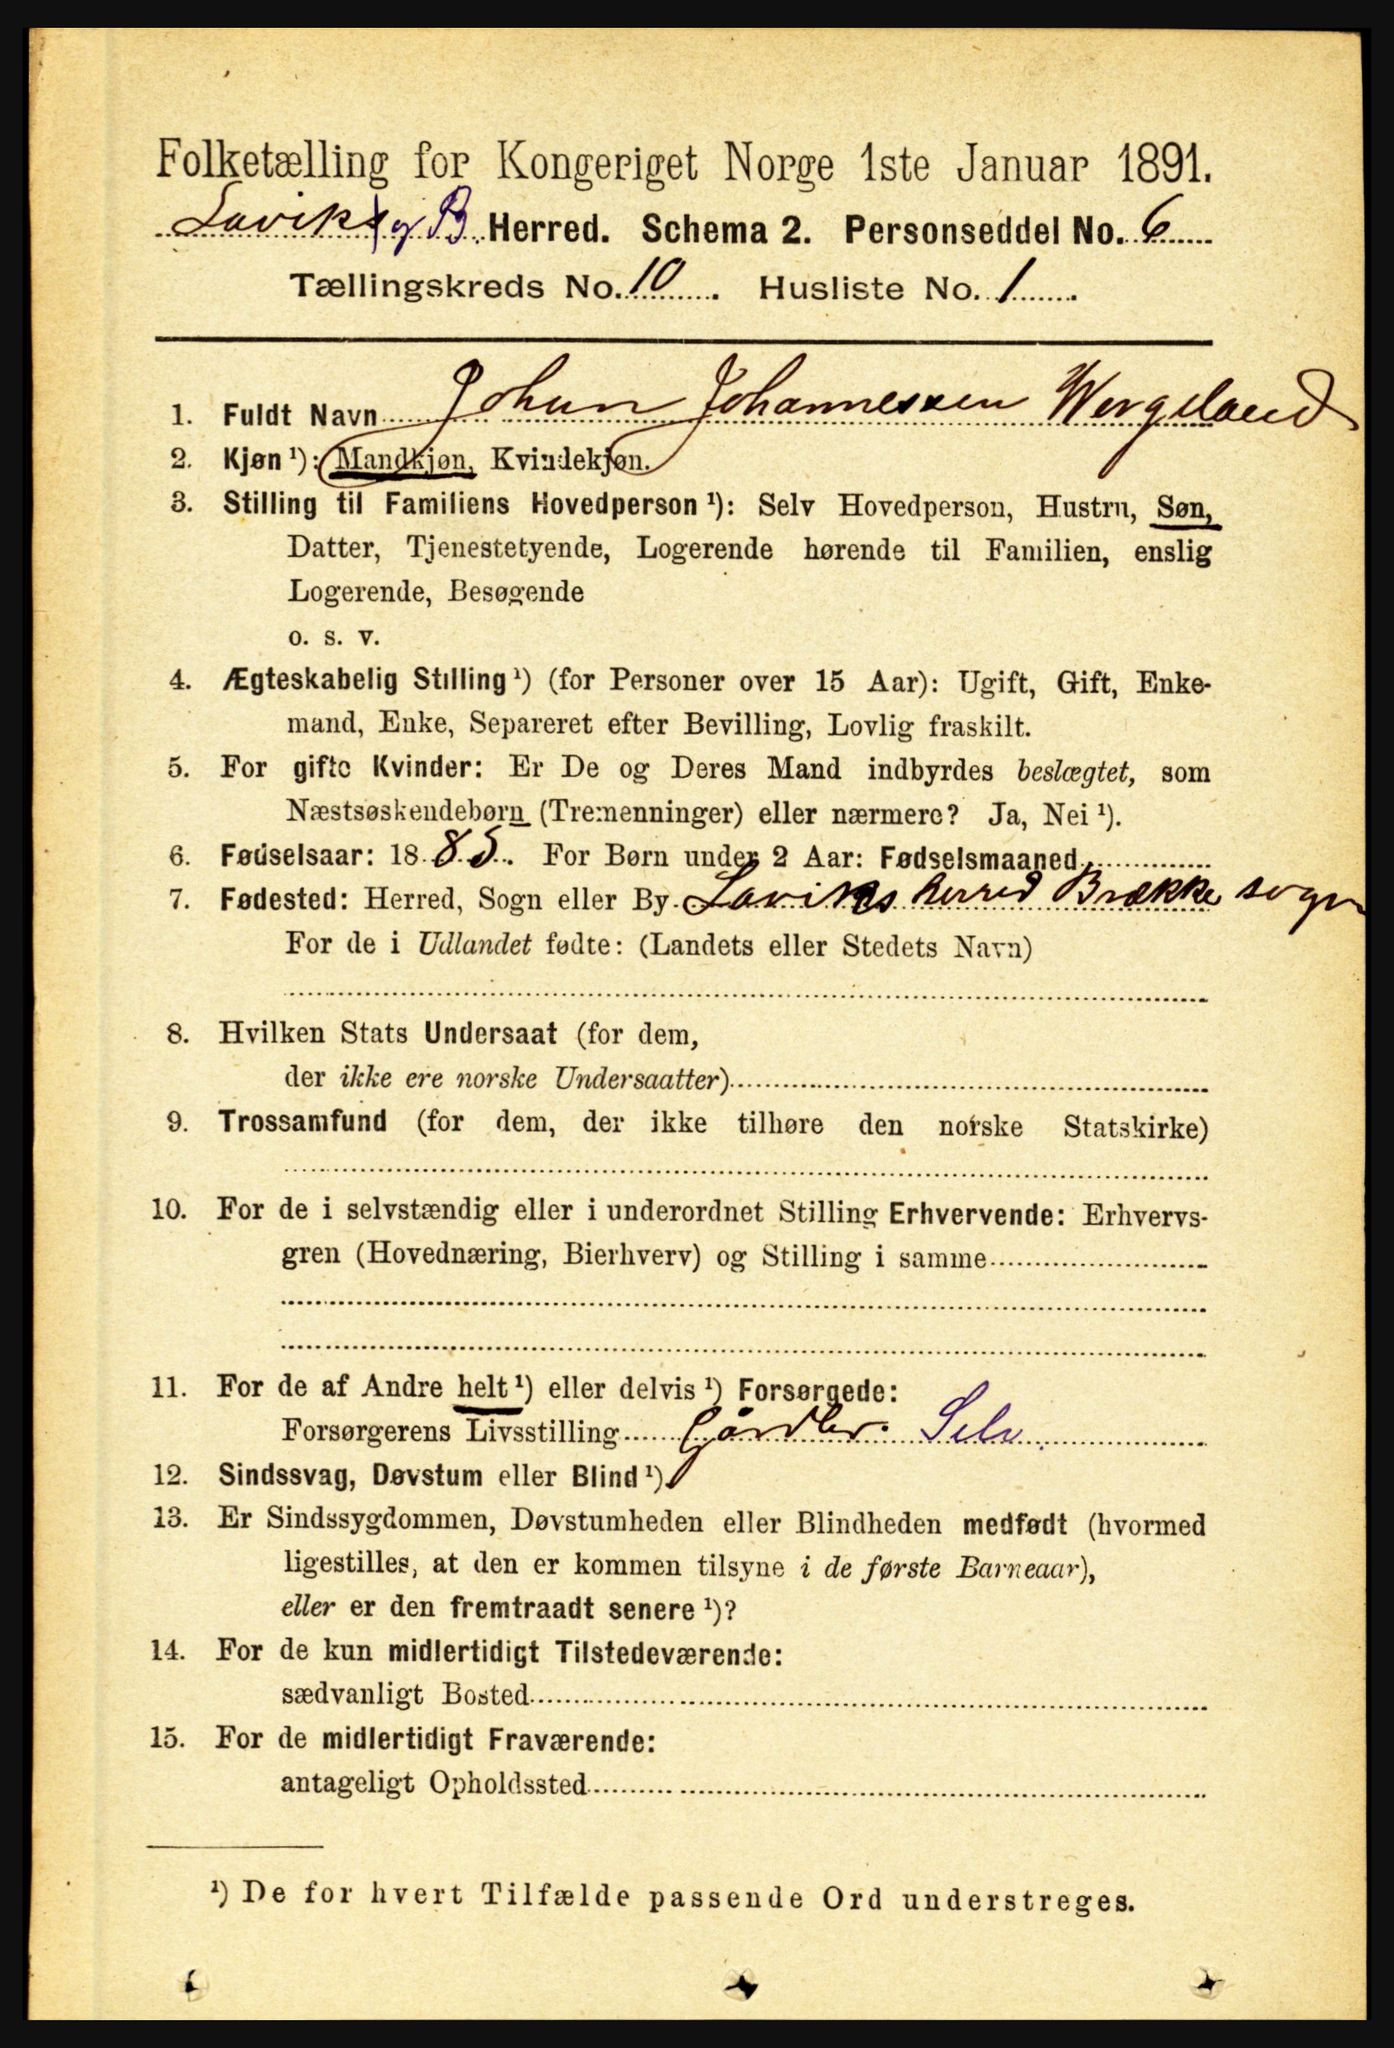 Folketælling for Kongeriget Norge 1ste Januar 1891.
Lavik og B. Herred. Schema 2. Personseddel No. 6
Tællingskreds No. 10. Husliste No. 1.
1. Fuldt Navn Johan Johannessen Wergeland
2. Kjøn ¹): Mandkjøn, Kvindekjøn.
3. Stilling til Familiens Hovedperson ¹): Selv Hovedperson, Hustru, Søn,
Datter, Tjenestetyende, Logerende hørende til Familien, enslig
Logerende, Besøgende
o. s. v.
4. Ægteskabelig Stilling ¹) (for Personer over 15 Aar): Ugift, Gift, Enke-
mand, Enke, Separeret efter Bevilling, Lovlig fraskilt.
5. For gifte Kvinder: Er De og Deres Mand indbyrdes beslægtet, som
Næstsøskendebørn (Tremenninger) eller nærmere? Ja, Nei ¹).
6. Fødselsaar: 1885. For Børn under 2 Aar: Fødselsmaaned
7. Fødested: Herred, Sogn eller By Laviks herred Brække sogn
For de i Udlandet fødte: (Landets eller Stedets Navn)
8. Hvilken Stats Undersaat (for dem,
der ikke ere norske Undersaatter)
9. Trossamfund (for dem, der ikke tilhøre den norske Statskirke)
10. For de i selvstændig eller i underordnet Stilling Erhvervende: Erhvervs-
gren (Hovednæring, Bierhverv) og Stilling i samme
11. For de af Andre helt ¹) eller delvis ¹) Forsørgede:
Forsørgerens Livsstilling Gårdbr. Selv.
12. Sindssvag, Døvstum eller Blind ¹)
13. Er Sindssygdommen, Døvstumheden eller Blindheden medfødt (hvormed
ligestilles, at den er kommen tilsyne i de første Barneaar),
eller er den fremtraadt senere ¹)?
14. For de kun midlertidigt Tilstedeværende:
sædvanligt Bosted
15. For de midlertidigt Fraværende:
antageligt Opholdssted
¹) De for hvert Tilfælde passende Ord understreges.